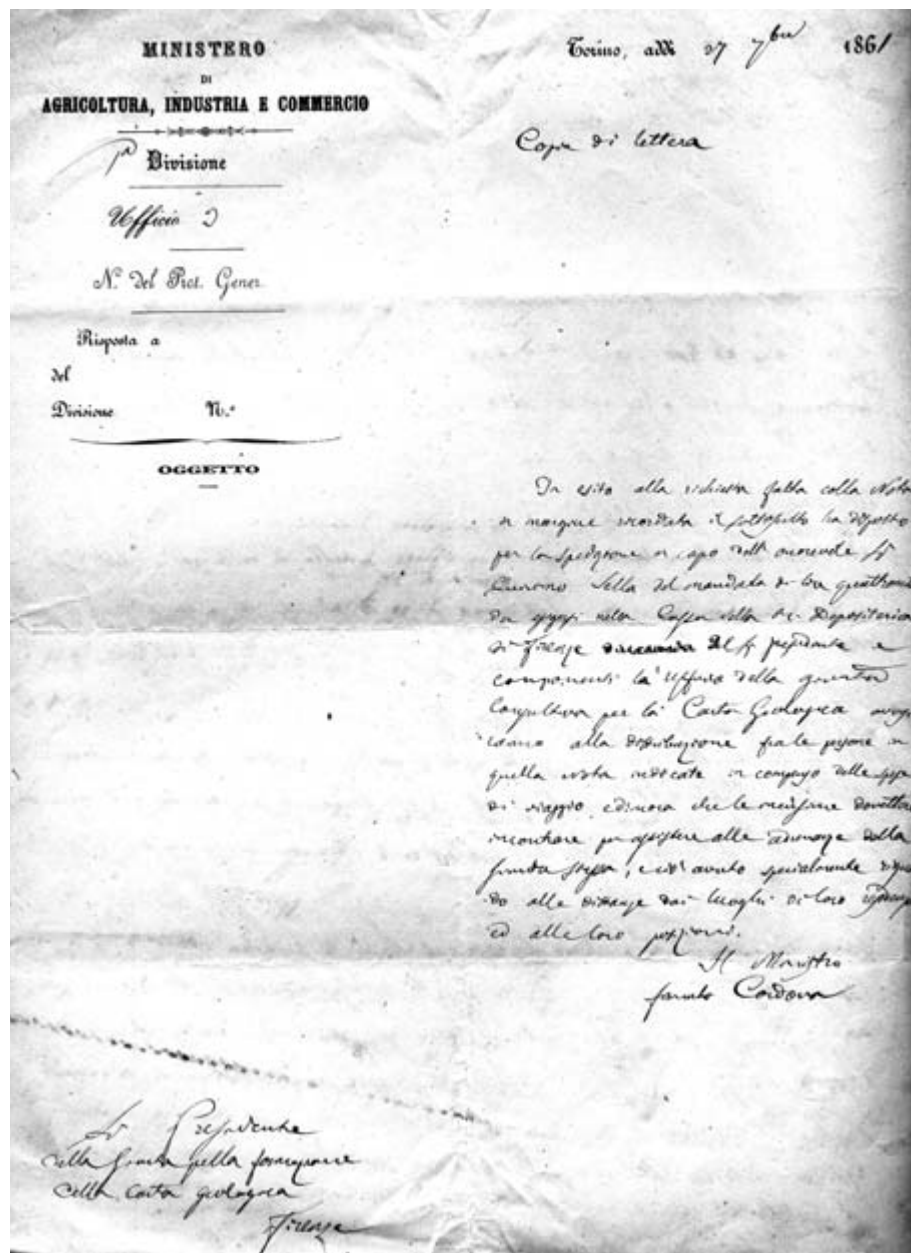 MINISTERO
DI
AGRICOLTURA, INDUSTRIA E COMMERCIO
Divisione
Ufficio
N. del Prot. Gener.
Risposta a
del
Divisione N.º
OGGETTO
Torino, addì 27 7bre 1861
Copia di lettera
In esito alla richiesta fatta colla Nota
in margine ricordata il sottoscritto ha disposto
per la spedizione in capo dell' onorevole Sr
Quintino Sella del mandato di
nella Cassa della Depositeria
di Firenze il Sr presidente e
componenti la Ufficio della giunta
Consultiva per la Carta Geologica
alla distribuzione fra le persone in
quella nota indicate in compenso delle spese
di viaggio, e dimora che le medesime
incontrare per assistere alle adunanze della
Giunta stessa, e ciò avuto specialmente
do alle distanze dai luoghi di loro
ed alle loro posizioni.
Il Ministro
firmato Cordova
Sr Presidente
della Giunta pella formazione
della Carta geologica
Firenze